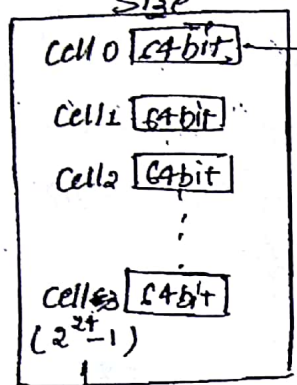 Size
Cell 0 64bit
Cell1 64bit
Cell2 64bit
Cell 64bit
(2^24-1)